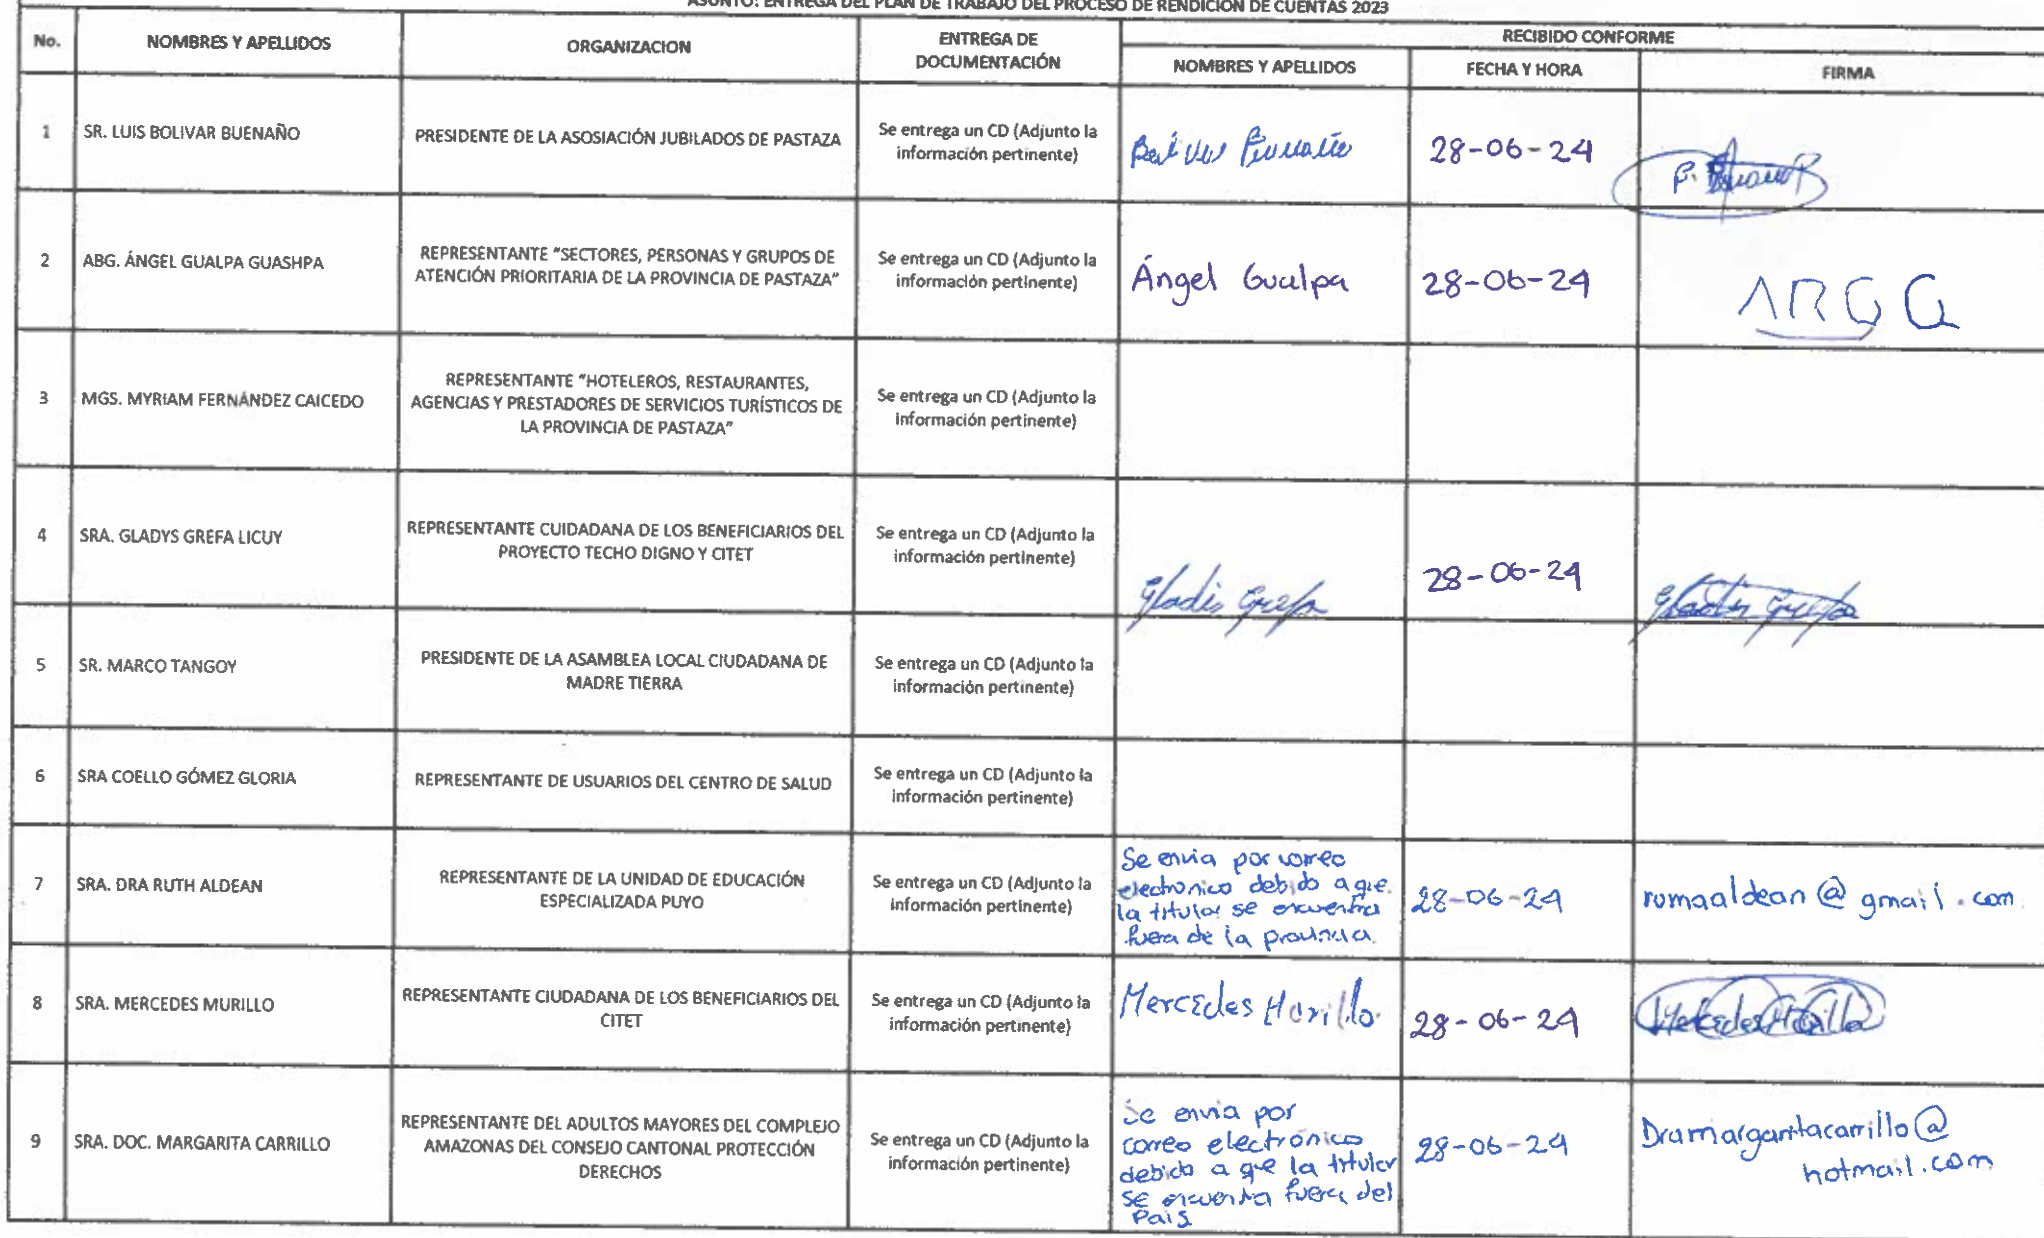 ASUNTO: ENTREGA DEL PLAN DE TRABAJO DEL PROCESO DE RENDICIÓN DE CUENTAS 2023
No.
NOMBRES Y APELLIDOS
ORGANIZACION
ENTREGA DE
DOCUMENTACIÓN
RECIBIDO CONFORME
NOMBRES Y APELLIDOS
FECHA Y HORA
FIRMA
1
SR. LUIS BOLIVAR BUENAÑO
PRESIDENTE DE LA ASOSIACIÓN JUBILADOS DE PASTAZA
Se entrega un CD (Adjunto la
información pertinente)
28-06-24
2
ABG. ÁNGEL GUALPA GUASHPA
REPRESENTANTE "SECTORES, PERSONAS Y GRUPOS DE
ATENCIÓN PRIORITARIA DE LA PROVINCIA DE PASTAZA"
Se entrega un CD (Adjunto la
información pertinente)
Ángel Gualpa
28-06-24
ARGG
3
MGS. MYRIAM FERNÁNDEZ CAICEDO
REPRESENTANTE "HOTELEROS, RESTAURANTES,
AGENCIAS Y PRESTADORES DE SERVICIOS TURÍSTICOS DE
LA PROVINCIA DE PASTAZA"
Se entrega un CD (Adjunto la
información pertinente)
4
SRA. GLADYS GREFA LICUY
REPRESENTANTE CUIDADANA DE LOS BENEFICIARIOS DEL
PROYECTO TECHO DIGNO Y CITET
Se entrega un CD (Adjunto la
información pertinente)
Gladis Grefa
28-06-24
Gladis Grefa
5
SR. MARCO TANGOY
PRESIDENTE DE LA ASAMBLEA LOCAL CIUDADANA DE
MADRE TIERRA
Se entrega un CD (Adjunto la
información pertinente)
6
SRA COELLO GÓMEZ GLORIA
REPRESENTANTE DE USUARIOS DEL CENTRO DE SALUD
Se entrega un CD (Adjunto la
información pertinente)
7
SRA. DRA RUTH ALDEAN
REPRESENTANTE DE LA UNIDAD DE EDUCACIÓN
ESPECIALIZADA PUYO
Se entrega un CD (Adjunto la
información pertinente)
Se envia por correo
electronico debido a que
la titular se encuentra
fuera de la provincia.
28-06-24
rumaaldean@gmail.com
8
SRA. MERCEDES MURILLO
REPRESENTANTE CIUDADANA DE LOS BENEFICIARIOS DEL
CITET
Se entrega un CD (Adjunto la
información pertinente)
Mercedes Murillo
28-06-24
9
SRA. DOC. MARGARITA CARRILLO
REPRESENTANTE DEL ADULTOS MAYORES DEL COMPLEJO
AMAZONAS DEL CONSEJO CANTONAL PROTECCIÓN
DERECHOS
Se entrega un CD (Adjunto la
información pertinente)
Se envia por
correo electrónico
debido a que la titular
se encuentra fuera del
Pais
28-06-24
Dramargaritacarrillo@
hotmail.com